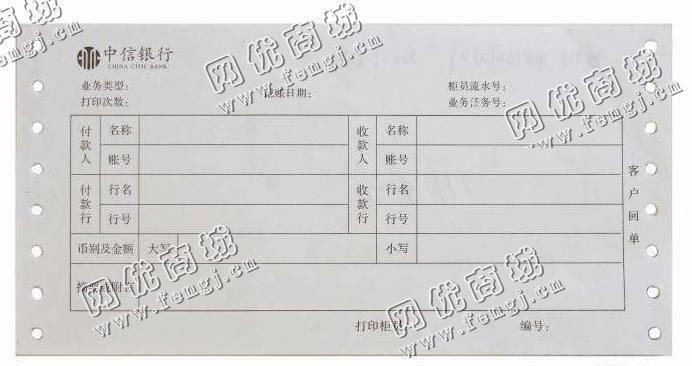 中信银行
CHINA CITIC BANK
业务类型: 记账日期: 柜员流水号:
打印次数: 业务任务号:
付款人 名称 收款人 名称
账号 账号
付款行 行名 收款行 行名
行号 行号
币别及金额 大写 小写
摘要或附言
客户回单
打印柜员: 编号:
网优商城
www.fengj.cn
网优商城
www.fengj.cn
网优商城
www.fengj.cn
网优商城
www.fengj.cn
网优商城
www.fengj.cn